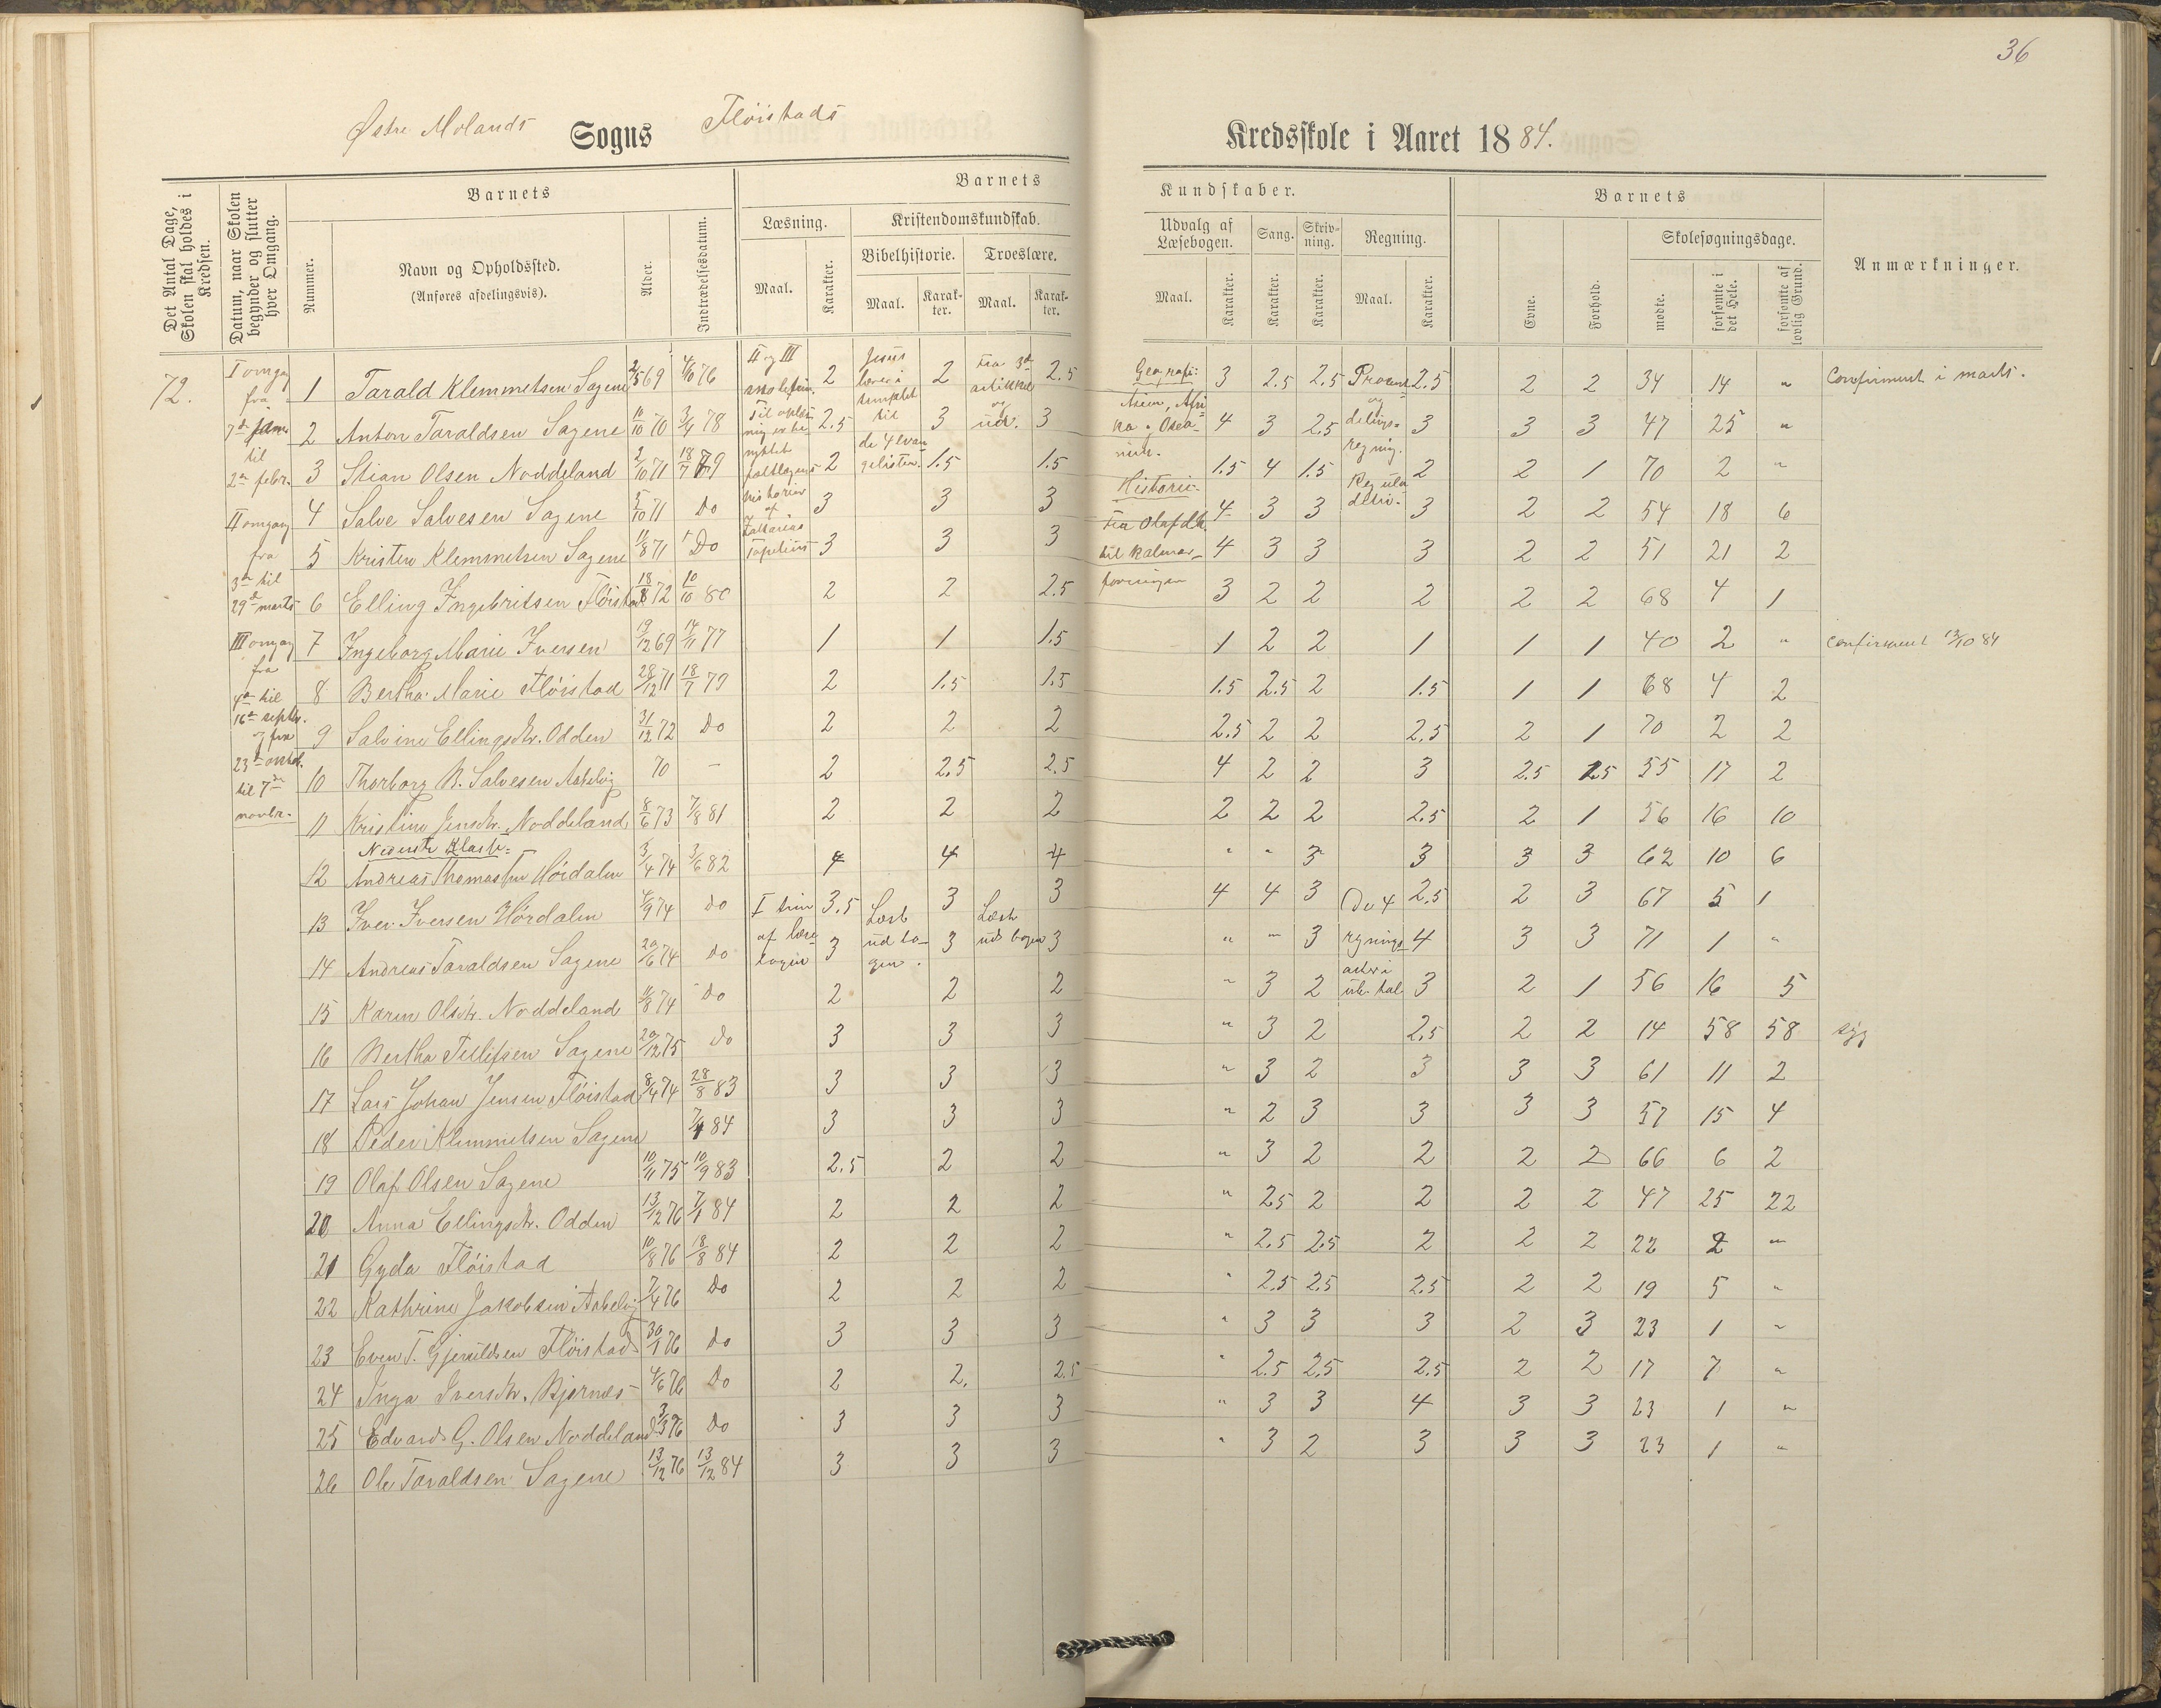 36
Østre Molands Sogns Flöistads Kredsskole i Aaret 1884.
Det Antal Dage, Skolen skal holdes i Kredsen.
Datum, naar Skolen begynder og slutter hver Omgang.
Barnets
Nummer.
Navn og Opholdssted.
(Anføres afdelingsvis).
Alder.
Indtrædelsesdatum.
Barnets Kundskaber.
Læsning.
Maal.
Karakter.
Kristendomskundskab.
Bibelhistorie.
Maal.
Karakter.
Troeslære.
Maal.
Karakter.
Udvalg af Læsebogen.
Maal.
Karakter.
Sang.
Karakter.
Skrivning.
Karakter.
Regning.
Maal.
Karakter.
Barnets
Evne.
Forhold.
Skolesøgningsdage.
mødte.
forsømte i det Hele.
forsømte af lovlig Grund.
Anmærkninger.
72.
I omgang
fra
7de jan.
til
2en febr.
II omgang
fra
3en til
29de marts
III omgang
fra
4de til
16de septbr.
og fra
23de oktob.
til 7de
novbr.
II og III
Jesus
lærer i
templet
til
de 4 evan
gelister.
Fra 3de
artikkel
og
ud.
Geografi:
Asien, Afri
ka og Osea-
nien.
Historie-
Fra Olaf d.h.
til kalmar-
foreningen
Procent
og
delings-
regning.
1 Tarald Klemmetsen Sagene 2/5 69 4/10 76 2 2 2.5 3 2.5 2.5 2.5 2 2 34 14 " Confirmert i marts.
2 Anton Taraldsen Sagene 10/10 70 3/4 78 2.5 3 3 4 3 2.5 3 3 3 47 25 "
3 Stian Olsen Noddeland 2/10 71 18/7 79 2 1.5 1.5 1.5 4 1.5 2 2 1 70 2 "
4 Salve Salvesen Sagene 5/10 71 Do 3 3 3 4 3 3 3 2 2 54 18 6
5 Kristen Klemmetsen Sagene 11/8 71 Do 3 3 3 4 3 3 3 2 2 51 21 2
6 Elling Ingebritsen Flöistad 18/8 72 10/10 80 2 2 2.5 3 2 2 2 2 2 68 4 1
7 Ingeborg Marie Iversen 19/12 69 14/11 77 1 1 1.5 1 2 2 1 1 1 40 2 " confirmert 12/10 84
8 Bertha Marie Flöistad 28/12 71 18/7 79 2 1.5 1.5 1.5 2.5 2 1.5 1 1 68 4 2
9 Salvine Ellingsdtr. Odden 31/12 72 Do 2 2 2 2.5 2 2 2.5 2 1 70 2 2
10 Thorborg B. Salvesen Askelvig 70 - 2 2.5 2.5 4 2 2 3 2.5 2.5 55 17 2
11 Kristine Jensdtr. Noddeland 8/6 73 7/8 81 2 2 2 2 2 2 2.5 2 1 56 16 10
Nederste Klasse:
12 Andreas Thomassen Höidalen 3/4 74 3/6 82 4 4 4 " " 3 3 3 3 62 10 6
13 Iver Iversen Hördalen 4/9 74 do 3.5 3 3 4 4 3 2.5 2 3 67 5 1
I trin
af læse
bogen
Læst
ud bo-
gen.
Læst
ud bogen
De 4
regnings-
arter i
ub. tal
14 Andreas Taraldsen Sagene 20/6 74 do 3 3 3 " " 3 4 3 3 71 1 "
15 Karen Olsdtr. Noddeland 11/8 74 Do 2 2 2 " 3 2 3 2 1 56 16 5
16 Bertha Tellefsen Sagene 20/12 75 do 3 3 3 " 3 2 2.5 2 2 14 58 58 syg
17 Lars Johan Jensen Flöistad 8/4 74 28/8 83 3 3 3 " 3 2 3 3 3 61 11 2
18 Peder Klemmetsen Sagene 7/1 84 3 3 3 " 2 3 3 3 3 57 15 4
19 Olaf Olsen Sagene 10/11 75 10/9 83 2.5 2 2 " 3 2 2 2 2 66 6 2
20 Anna Ellingsdtr. Odden 13/12 76 7/1 84 2 2 2 " 2.5 2 2 2 2 47 25 22
21 Gyda Flöistad 10/8 76 18/8 84 2 2 2 " 2.5 2.5 2 2 2 22 2 "
22 Kathrine Jakobsen Askelvig 7/4 76 Do 2 2 2 " 2.5 2.5 2.5 2 2 19 5 "
23 Even T. Gjeruldsen Flöistad 30/1 76 do 3 3 3 " 3 3 3 2 3 23 1 "
24 Inga Iversdtr. Bjørnes 4/6 76 Do 2 2. 2.5 " 2.5 2.5 2.5 2 2 17 7 "
25 Edvard G. Olsen Noddeland 3/3 76 Do 3 3 3 " 3 3 4 3 3 23 1 "
26 Ole Taraldsen Sagene 13/12 76 13/12 84 3 3 3 " 3 2 3 3 3 23 1 "